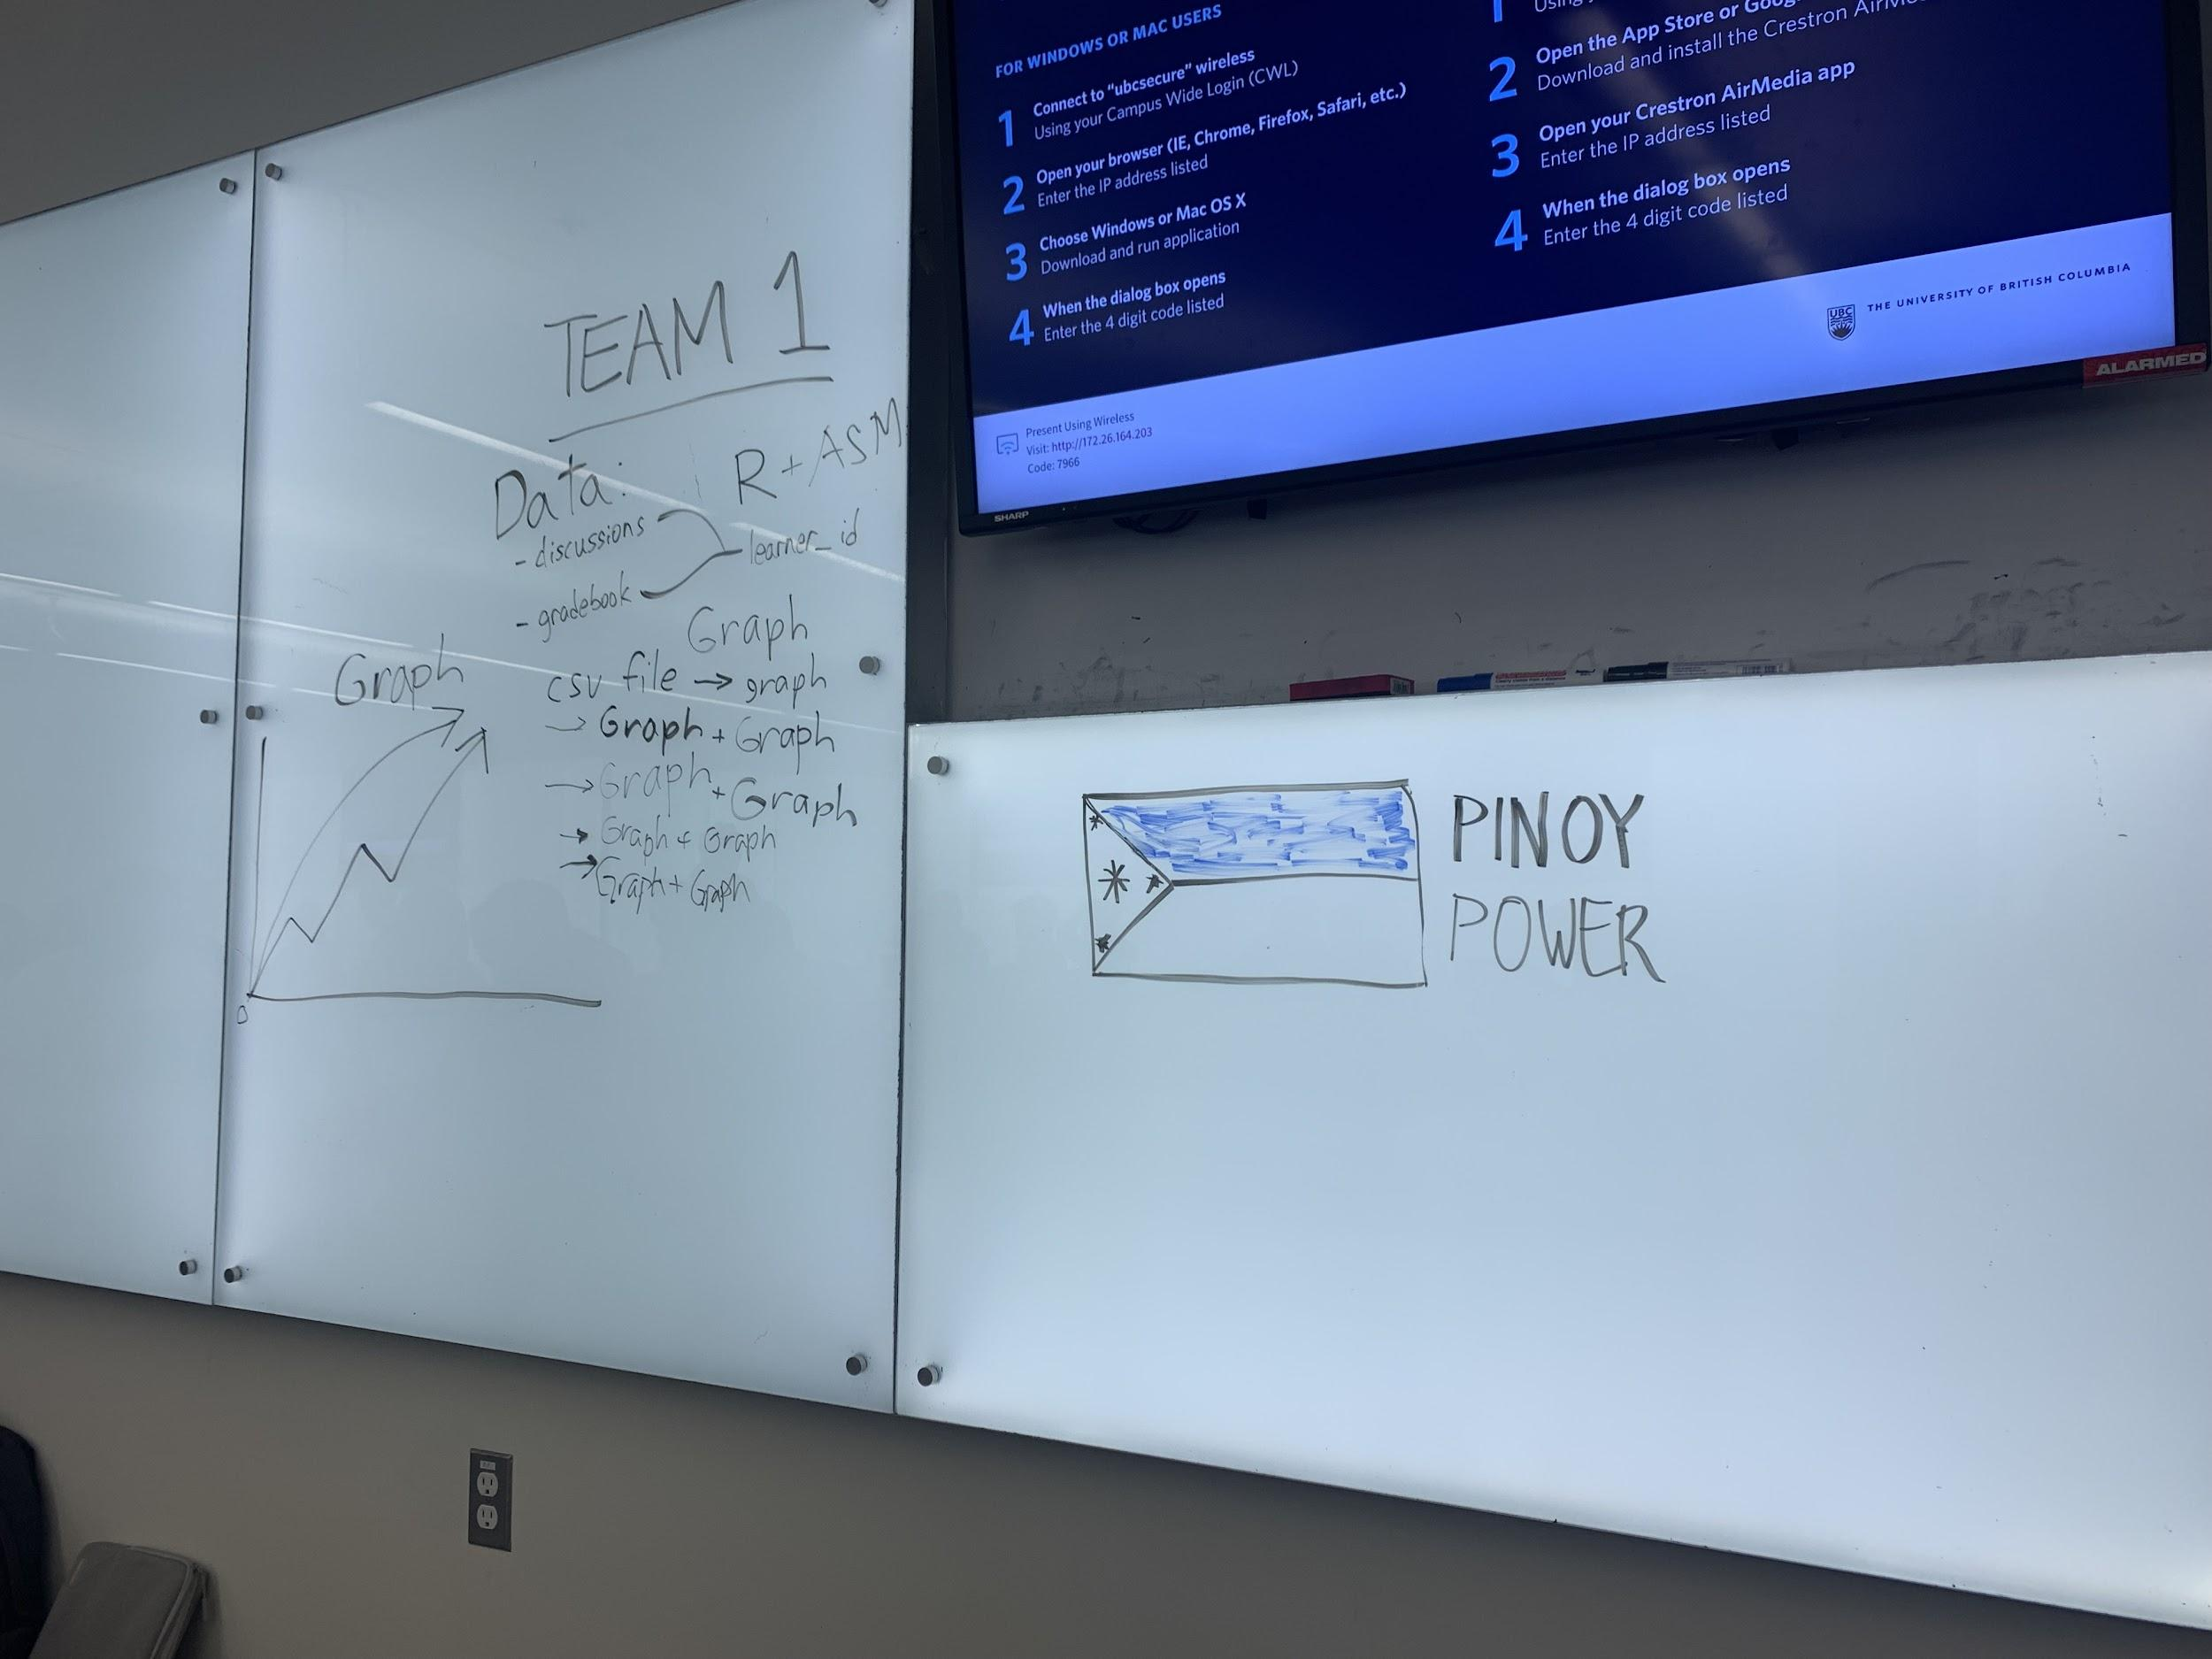 TEAM 1
Data:
R + ASM
- discussions
learner_id
- gradebook
Graph
csv file → graph
→ Graph + Graph
→ Graph + Graph
→ Graph + Graph
→ Graph + Graph
Graph
0
FOR WINDOWS OR MAC USERS
1 Connect to "ubcsecure" wireless
Using your Campus Wide Login (CWL)
2 Open your browser (IE, Chrome, Firefox, Safari, etc.)
Enter the IP address listed
3 Choose Windows or Mac OS X
Download and run application
4 When the dialog box opens
Enter the 4 digit code listed
1
Using
2 Open the App Store or
Download and install the Crestron
3 Open your Crestron AirMedia app
Enter the IP address listed
4 When the dialog box opens
Enter the 4 digit code listed
UBC
THE UNIVERSITY OF BRITISH COLUMBIA
Present Using Wireless
Visit: http://172.26.164.203
Code: 7966
SHARP
ALARMED
PINOY
POWER